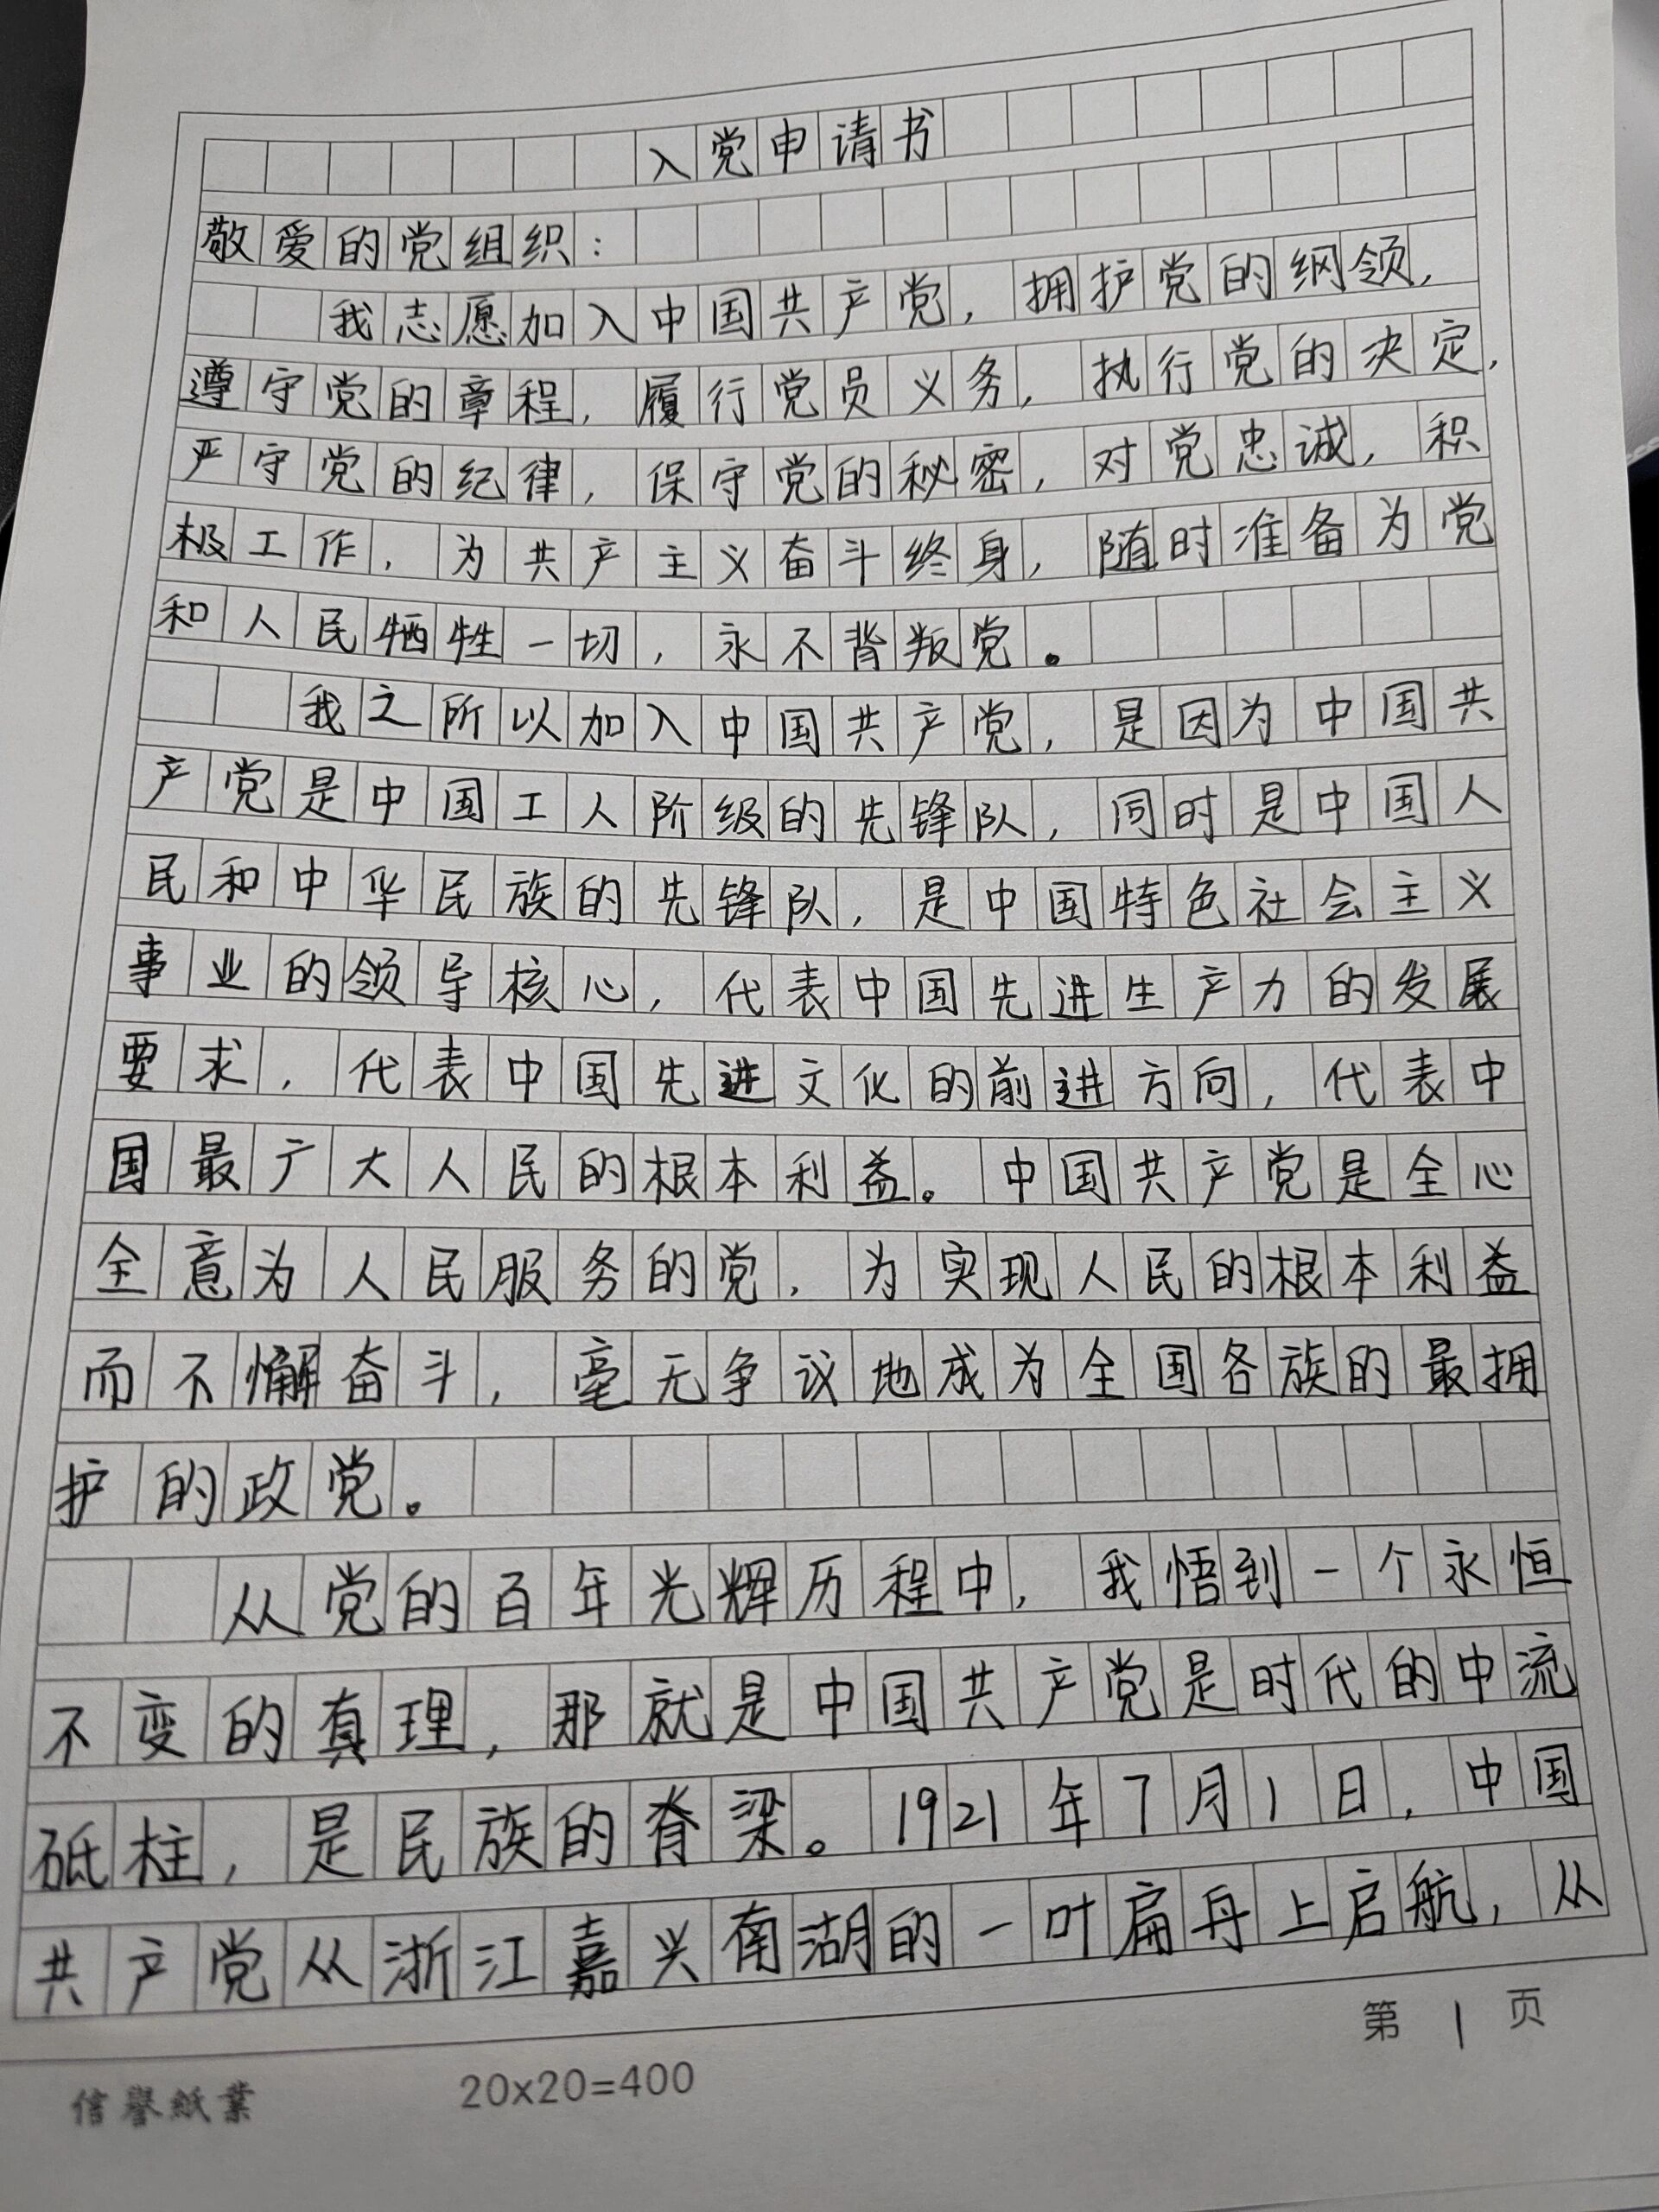 入党申请书
敬爱的党组织：
我志愿加入中国共产党，拥护党的纲领，
遵守党的章程，履行党员义务，执行党的决定，
严守党的纪律，保守党的秘密，对党忠诚，积
极工作，为共产主义奋斗终身，随时准备为党
和人民牺牲一切，永不背叛党。
我之所以加入中国共产党，是因为中国共
产党是中国工人阶级的先锋队，同时是中国人
民和中华民族的先锋队，是中国特色社会主义
事业的领导核心，代表中国先进生产力的发展
要求，代表中国先进文化的前进方向，代表中
国最广大人民的根本利益。中国共产党是全心
全意为人民服务的党，为实现人民的根本利益
而不懈奋斗，毫无争议地成为全国各族的最拥
护的政党。
从党的百年光辉历程中，我悟到一个永恒
不变的真理，那就是中国共产党是时代的中流
砥柱，是民族的脊梁。1921年7月1日，中国
共产党从浙江嘉兴南湖的一叶扁舟上启航，从
第1页
信誉紙業 20x20=400